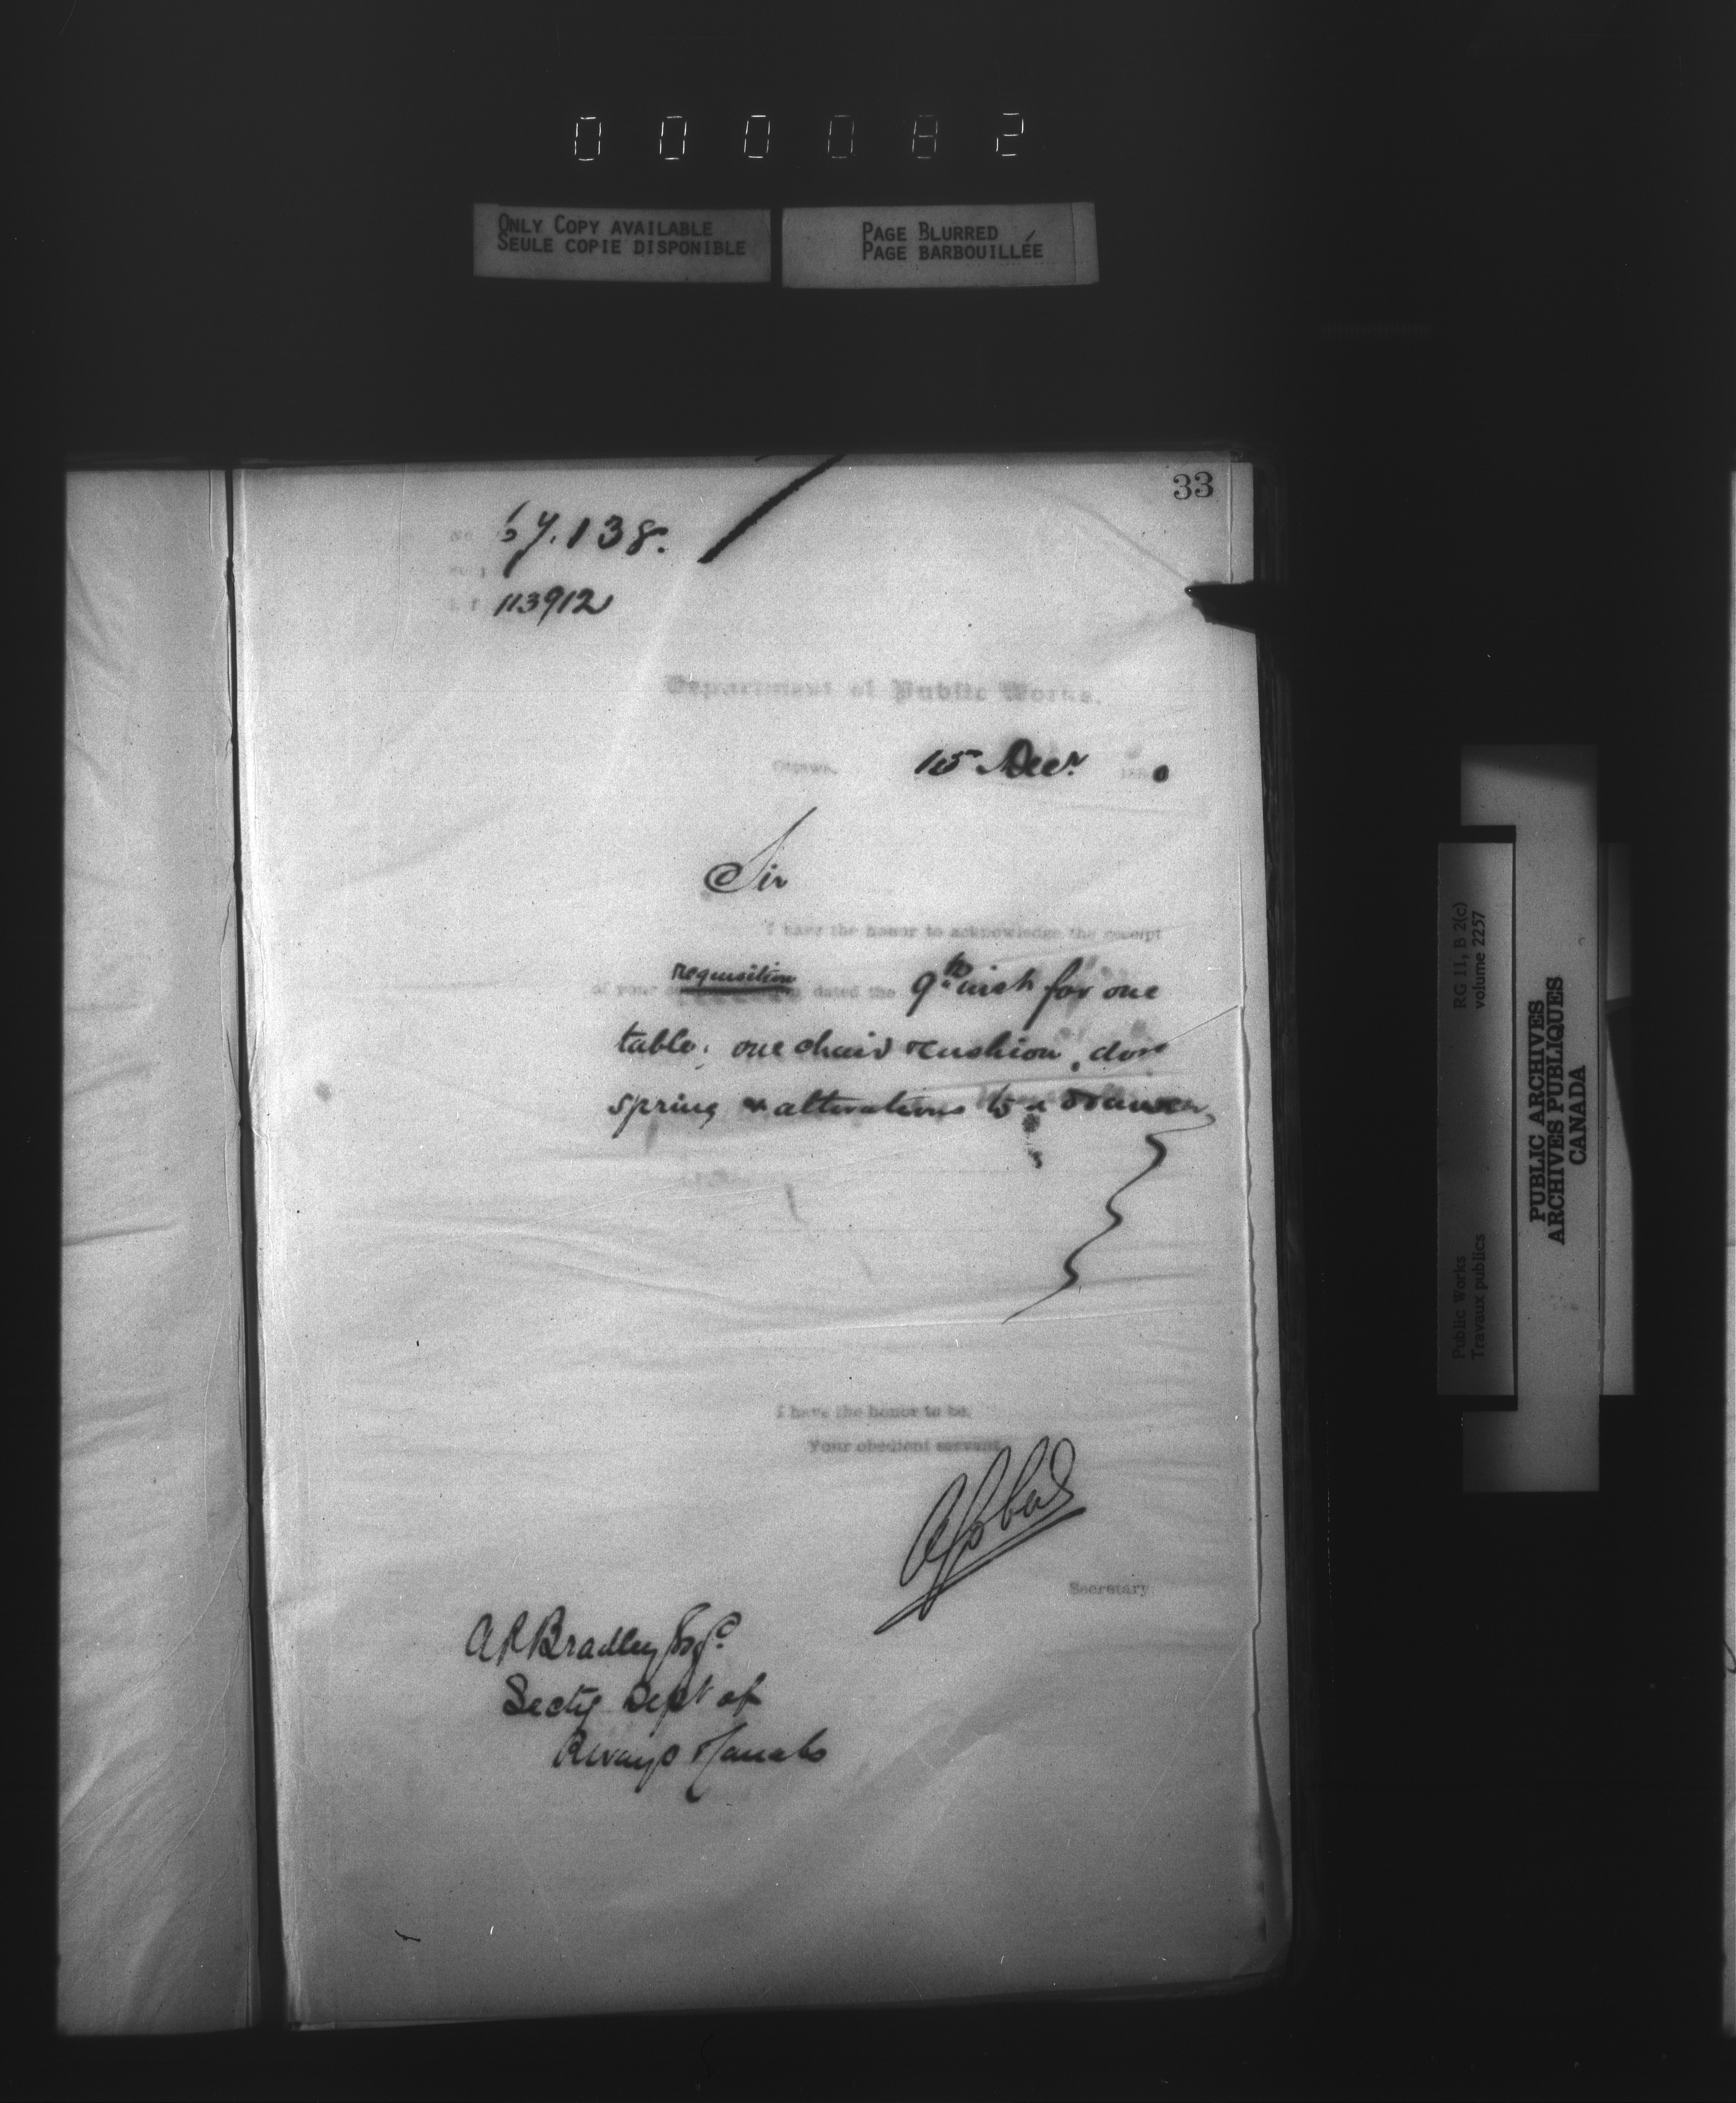 000082
ONLY COPY AVAILABLE
SEULE COPIE DISPONIBLE
PAGE BLURRED
PAGE BARBOUILLÉE
33
No 67.138.
Subj
113912
Department of Public Works.
Ottawa, 15 Decr 1880
Sir
I have the honor to acknowledge the receipt
of your requisition dated the 9th inst for one
table, one chair cushion, door
spring & alterations to a drawer
I have the honor to be,
Your obedient servant
Secretary
A P Bradley Esqr
Secty Dept of
Rways & Canals
Public Works RG 11, B 2(c)
Travaux publics volume 2257
PUBLIC ARCHIVES
ARCHIVES PUBLIQUES
CANADA